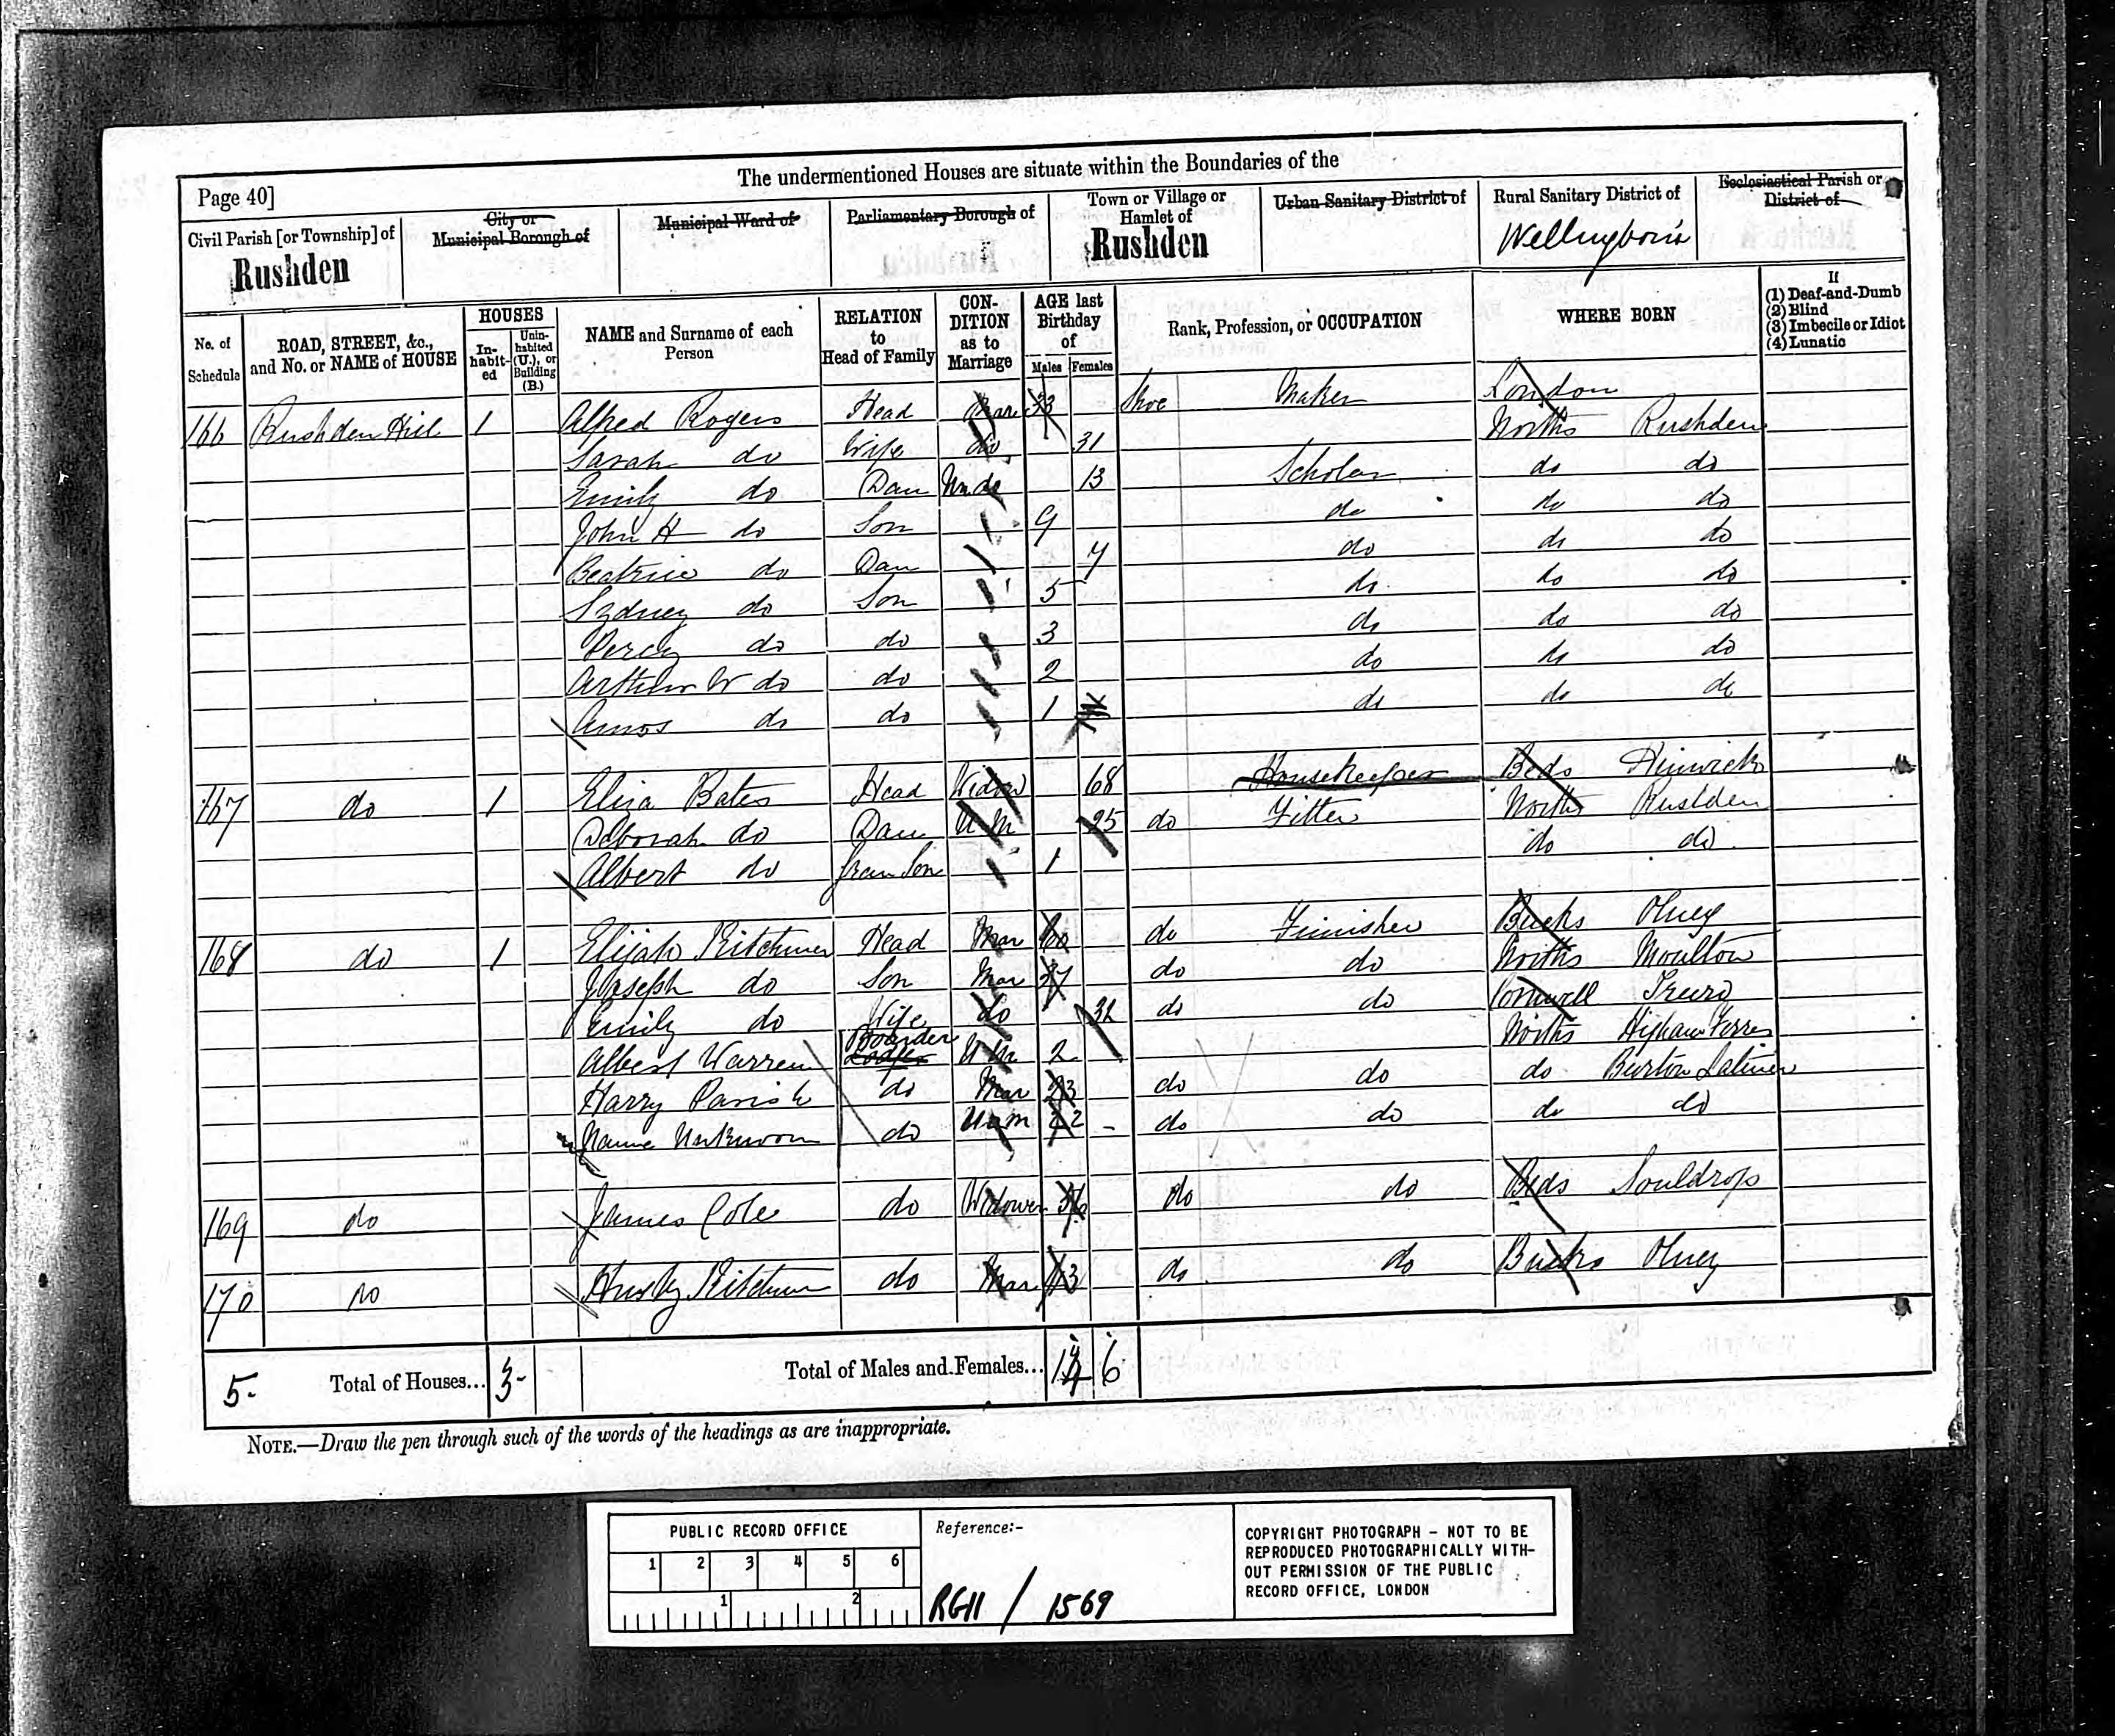 The undermentioned Houses are situate within the Boundaries of the
Page 40]
Civil Parish [or Township] of Rushden
City or Municipal Borough of
Municipal Ward of
Parliamentary Borough of
Town or Village or Hamlet of Rushden
Urban Sanitary District of
Rural Sanitary District of
Ecclesiastical Parish or District of
No. of Schedule
ROAD, STREET, &c., and No. or NAME of HOUSE
HOUSES
In-habit-ed
Unin-habited (U.), or Building (B.)
NAME and Surname of each Person
RELATION to Head of Family
CON-DITION as to Marriage
AGE last Birthday of
Males Females
Rank, Profession, or OCCUPATION
WHERE BORN
If
(1) Deaf-and-Dumb
(2) Blind
(3) Imbecile or Idiot
(4) Lunatic
166 Rushden Hill 1 Alfred Rogers Head Mar 33 Shoe Maker London
Sarah do Wife do 31 Norths Rushden
Emily do Dau 13 Scholar do do
John H do Son 9 do do do
Beatrice do Dau 7 do do do
Sydney do Son 5 do do do
Percy do do 3 do do do
Arthur W do do 2 do do do
Amos do do 1 do do do
167 do 1 Eliza Bates Head Widow 68 Housekeeper Beds Hinwick
Deborah do Dau U M 25 do Fitter North Rushden
Albert do Gran Son 1 do do
168 do 1 Elijah Kitchener Head Mar 60 do Finisher Bucks Olney
Joseph do Son Mar 37 do do Norths Moulton
Emily do Wife do 32 do do Cornwell Truro
Albert Warren Boarder Lodger U M 2 Norths Higham Ferres
Harry Parish do Mar 23 do do do Burton Latimer
Name Unknown do Unm 22 - do do do do
169 do James Cole do Widower 36 do do Beds Souldrop
170 do do Mar 43 do do Bucks Olney
5- Total of Houses... 3- Total of Males and Females... 6
NOTE.—Draw the pen through such of the words of the headings as are inappropriate.
PUBLIC RECORD OFFICE
1 2 3 4 5 6
1 2
Reference:-
RG11 / 1569
COPYRIGHT PHOTOGRAPH - NOT TO BE
REPRODUCED PHOTOGRAPHICALLY WITH-
OUT PERMISSION OF THE PUBLIC
RECORD OFFICE, LONDON